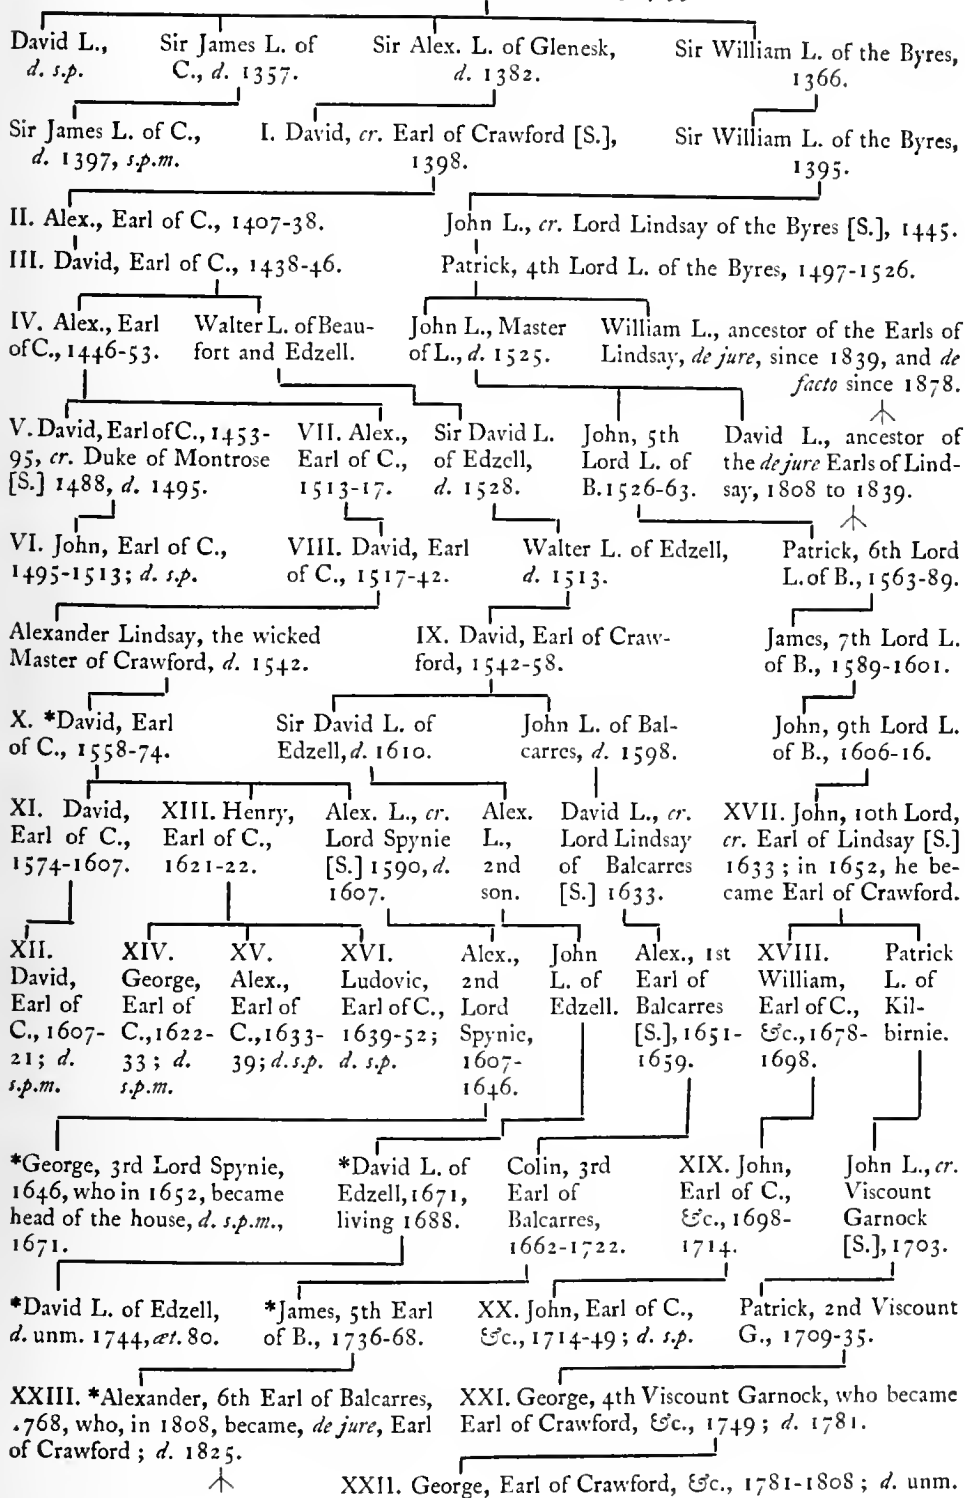 David L., d. s.p.
Sir James L. of C., d. 1357.
Sir Alex. L. of Glenesk, d. 1382.
Sir William L. of the Byres, 1366.
Sir James L. of C., d. 1397, s.p.m.
I. David, cr. Earl of Crawford [S.], 1398.
Sir William L. of the Byres, 1395.
II. Alex., Earl of C., 1407-38.
John L., cr. Lord Lindsay of the Byres [S.], 1445.
III. David, Earl of C., 1438-46.
Patrick, 4th Lord L. of the Byres, 1497-1526.
IV. Alex., Earl
of C., 1446-53.
Walter L. of Beau-
fort and Edzell.
John L., Master
of L., d. 1525.
William L., ancestor of the Earls of
Lindsay, de jure, since 1839, and de
facto since 1878.
V. David, Earl of C., 1453-
95, cr. Duke of Montrose
[S.] 1488, d. 1495.
VII. Alex.,
Earl of C.,
1513-17.
Sir David L.
of Edzell,
d. 1528.
John, 5th
Lord L. of
B. 1526-63.
David L., ancestor of
the de jure Earls of Lind-
say, 1808 to 1839.
VI. John, Earl of C.,
1495-1513; d. s.p.
VIII. David, Earl
of C., 1517-42.
Walter L. of Edzell,
d. 1513.
Patrick, 6th Lord
L. of B., 1563-89.
Alexander Lindsay, the wicked
Master of Crawford, d. 1542.
IX. David, Earl of Craw-
ford, 1542-58.
James, 7th Lord L.
of B., 1589-1601.
X. *David, Earl
of C., 1558-74.
Sir David L. of
Edzell, d. 1610.
John L. of Bal-
carres, d. 1598.
John, 9th Lord L.
of B., 1606-16.
XI. David,
Earl of C.,
1574-1607.
XIII. Henry,
Earl of C.,
1621-22.
Alex. L., cr.
Lord Spynie
[S.] 1590, d.
1607.
Alex.
L.,
2nd
son.
David L., cr.
Lord Lindsay
of Balcarres
[S.] 1633.
XVII. John, 10th Lord,
cr. Earl of Lindsay [S.]
1633; in 1652, he be-
came Earl of Crawford.
XII.
David,
Earl of
C., 1607-
21; d.
s.p.m.
XIV.
George,
Earl of
C., 1622-
33; d.
s.p.m.
XV.
Alex.,
Earl of
C., 1633-
39; d.s.p.
XVI.
Ludovic,
Earl of C.,
1639-52;
d. s.p.
Alex.,
2nd
Lord
Spynie,
1607-
1646.
John
L. of
Edzell.
Alex., 1st
Earl of
Balcarres
[S.], 1651-
1659.
XVIII.
William,
Earl of C.,
&c., 1678-
1698.
Patrick
L. of
Kil-
birnie.
*George, 3rd Lord Spynie,
1646, who in 1652, became
head of the house, d. s.p.m.,
1671.
*David L. of
Edzell, 1671,
living 1688.
Colin, 3rd
Earl of
Balcarres,
1662-1722.
XIX. John,
Earl of C.,
&c., 1698-
1714.
John L., cr.
Viscount
Garnock
[S.], 1703.
*David L. of Edzell,
d. unm. 1744, æt. 80.
*James, 5th Earl
of B., 1736-68.
XX. John, Earl of C.,
&c., 1714-49; d. s.p.
Patrick, 2nd Viscount
G., 1709-35.
XXIII. *Alexander, 6th Earl of Balcarres,
.768, who, in 1808, became, de jure, Earl
of Crawford; d. 1825.
XXI. George, 4th Viscount Garnock, who became
Earl of Crawford, &c., 1749; d. 1781.
XXII. George, Earl of Crawford, &c., 1781-1808; d. unm.